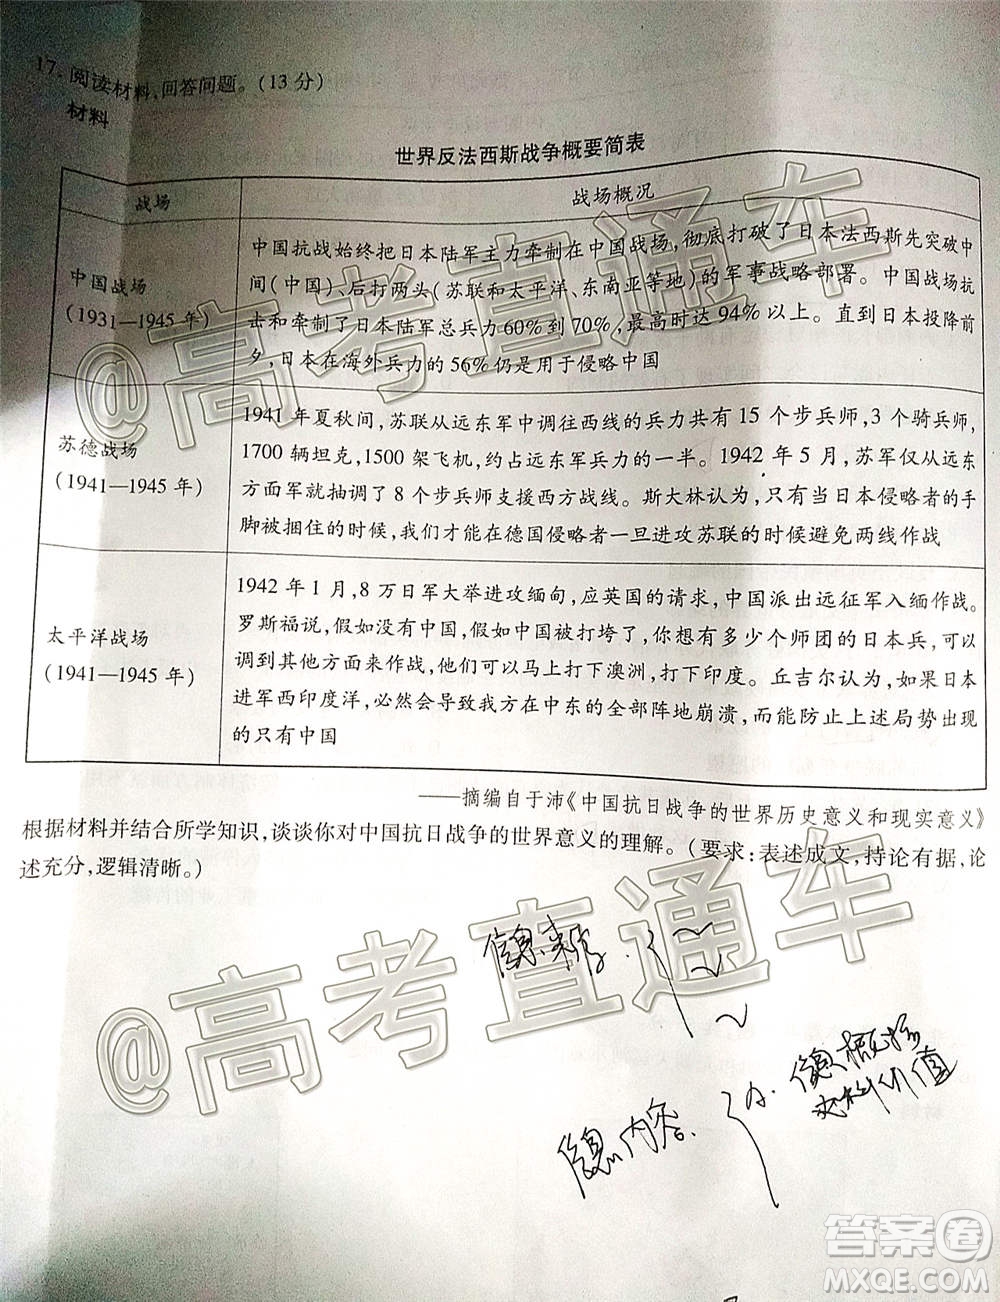 17. 阅读材料,回答问题。(13分)
材料
世界反法西斯战争概要简表
战场
战场概况
中国战场
(1931—1945年)
中国抗战始终把日本陆军主力牵制在中国战场,彻底打破了日本法西斯先突破中
间(中国)、后打两头(苏联和太平洋、东南亚等地)的军事战略部署。中国战场抗
击和牵制了日本陆军总兵力60%到70%,最高时达94%以上。直到日本投降前
夕,日本在海外兵力的56%仍是用于侵略中国
苏德战场
(1941—1945年)
1941年夏秋间,苏联从远东军中调往西线的兵力共有15个步兵师,3个骑兵师,
1700辆坦克,1500架飞机,约占远东军兵力的一半。1942年5月,苏军仅从远东
方面军就抽调了8个步兵师支援西方战线。斯大林认为,只有当日本侵略者的手
脚被捆住的时候,我们才能在德国侵略者一旦进攻苏联的时候避免两线作战
太平洋战场
(1941—1945年)
1942年1月,8万日军大举进攻缅甸,应英国的请求,中国派出远征军入缅作战。
罗斯福说,假如没有中国,假如中国被打垮了,你想有多少个师团的日本兵,可以
调到其他方面来作战,他们可以马上打下澳洲,打下印度。丘吉尔认为,如果日本
进军西印度洋,必然会导致我方在中东的全部阵地崩溃,而能防止上述局势出现
的只有中国
——摘编自于沛《中国抗日战争的世界历史意义和现实意义》
根据材料并结合所学知识,谈谈你对中国抗日战争的世界意义的理解。(要求:表述成文,持论有据,论
述充分,逻辑清晰。)
@高考直通车
@高考直通车
信息来源
信息内容
信息概括
史料价值
答案圈
MXQE.COM